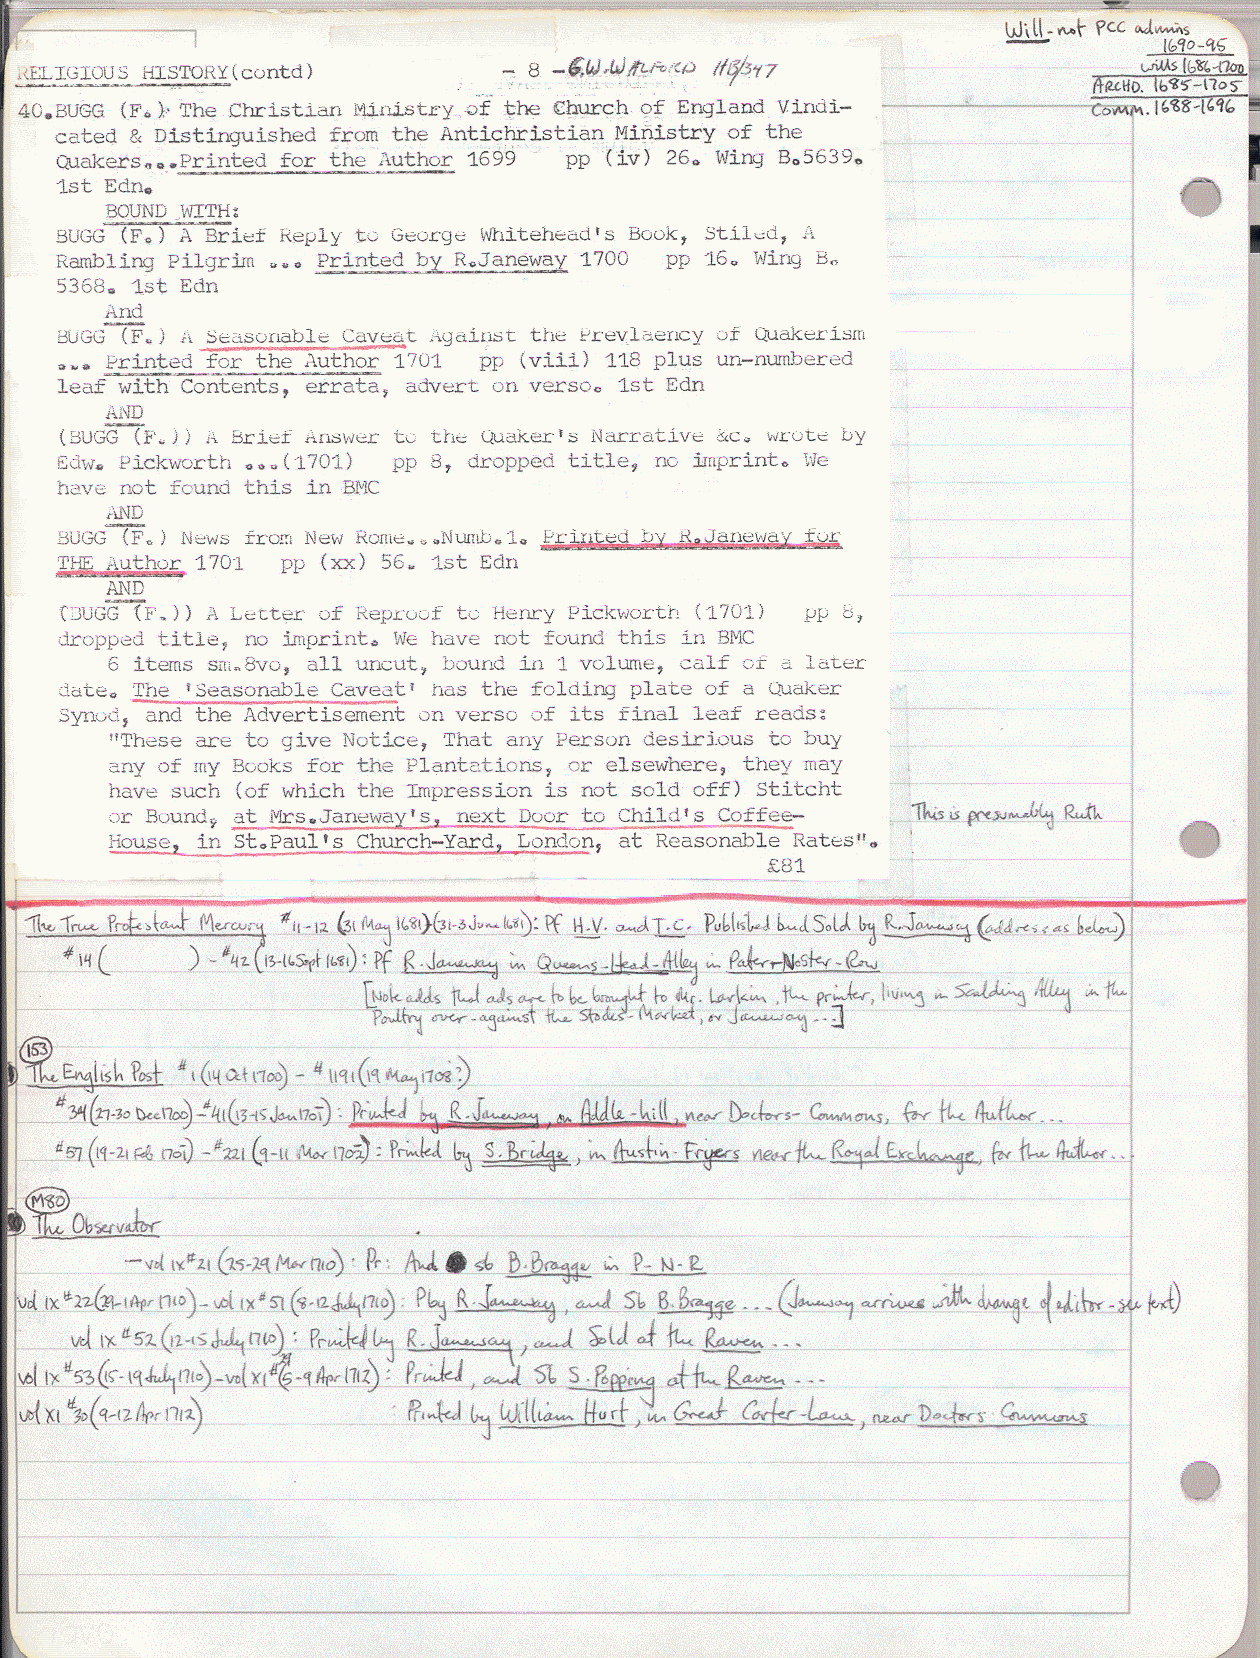 Will - not PCC admins
1690-95
wills 1686-1700
ARCHD. 1685-1705
Comm. 1688-1696
RELIGIOUS HISTORY(contd) - 8 - G.W.WALFORD HB/347
40.BUGG (F.) The Christian Ministry of the Church of England Vindi-
cated & Distinguished from the Antichristian Ministry of the
Quakers....Printed for the Author 1699 pp (iv) 26. Wing B.5639.
1st Edn.
BOUND WITH:
BUGG (F.) A Brief Reply to George Whitehead's Book, Stiled, A
Rambling Pilgrim ... Printed by R.Janeway 1700 pp 16. Wing B.
5368. 1st Edn
And
BUGG (F.) A Seasonable Caveat Against the Prevlaency of Quakerism
... Printed for the Author 1701 pp (viii) 118 plus un-numbered
leaf with Contents, errata, advert on verso. 1st Edn
AND
(BUGG (F.)) A Brief Answer to the Quaker's Narrative &c. wrote by
Edw. Pickworth ...(1701) pp 8, dropped title, no imprint. We
have not found this in BMC
AND
BUGG (F.) News from New Rome...Numb.1. Printed by R.Janeway for
THE Author 1701 pp (xx) 56. 1st Edn
AND
(BUGG (F.)) A Letter of Reproof to Henry Pickworth (1701) pp 8,
dropped title, no imprint. We have not found this in BMC
6 items sm.8vo, all uncut, bound in 1 volume, calf of a later
date. The 'Seasonable Caveat' has the folding plate of a Quaker
Synod, and the Advertisement on verso of its final leaf reads:
"These are to give Notice, That any Person desirious to buy
any of my Books for the Plantations, or elsewhere, they may
have such (of which the Impression is not sold off) Stitcht
or Bound, at Mrs.Janeway's, next Door to Child's Coffee-
House, in St.Paul's Church-Yard, London, at Reasonable Rates".
£81
This is presumably Ruth
The True Protestant Mercury #11-12 (31 May 1681)-(31-3 June 1681): Pf H.V. and T.C. Published and Sold by R.Janeway (address as below)
#14 ( ) - #42 (13-16 Sept 1681): Pf R.Janeway in Queens-Head-Alley in Pater-Noster-Row
[Note adds that ads are to be brought to Mr. Larkin, the printer, living in Scalding Alley in the
Poultry over-against the Stocks-Market, or Janeway...]
153
The English Post #1 (14 Oct 1700) - #1191 (19 May 1708?)
#34 (27-30 Dec 1700) - #41 (13-15 Jan 1701): Printed by R.Janeway, on Addle-hill, near Doctors-Commons, for the Author...
#57 (19-21 Feb 1701) - #221 (9-11 Mar 1702): Printed by S.Bridge, in Austin-Fryers near the Royal Exchange, for the Author...
M80
The Observator
- vol ix #21 (25-29 Mar 1710): Pr: And sb B.Bragge in P-N-R
vol ix #22 (29-1 Apr 1710) - vol ix #51 (8-12 July 1710): P by R.Janeway, and Sb B.Bragge... (Janeway arrives with change of editor - see text)
vol ix #52 (12-15 July 1710): Printed by R.Janeway, and Sold at the Raven...
vol ix #53 (15-19 July 1710) - vol xi #29 (5-9 Apr 1712): Printed, and Sb S.Popping at the Raven...
vol xi #30 (9-12 Apr 1712) : Printed by William Hurt, in Great Carter-Lane, near Doctors Commons